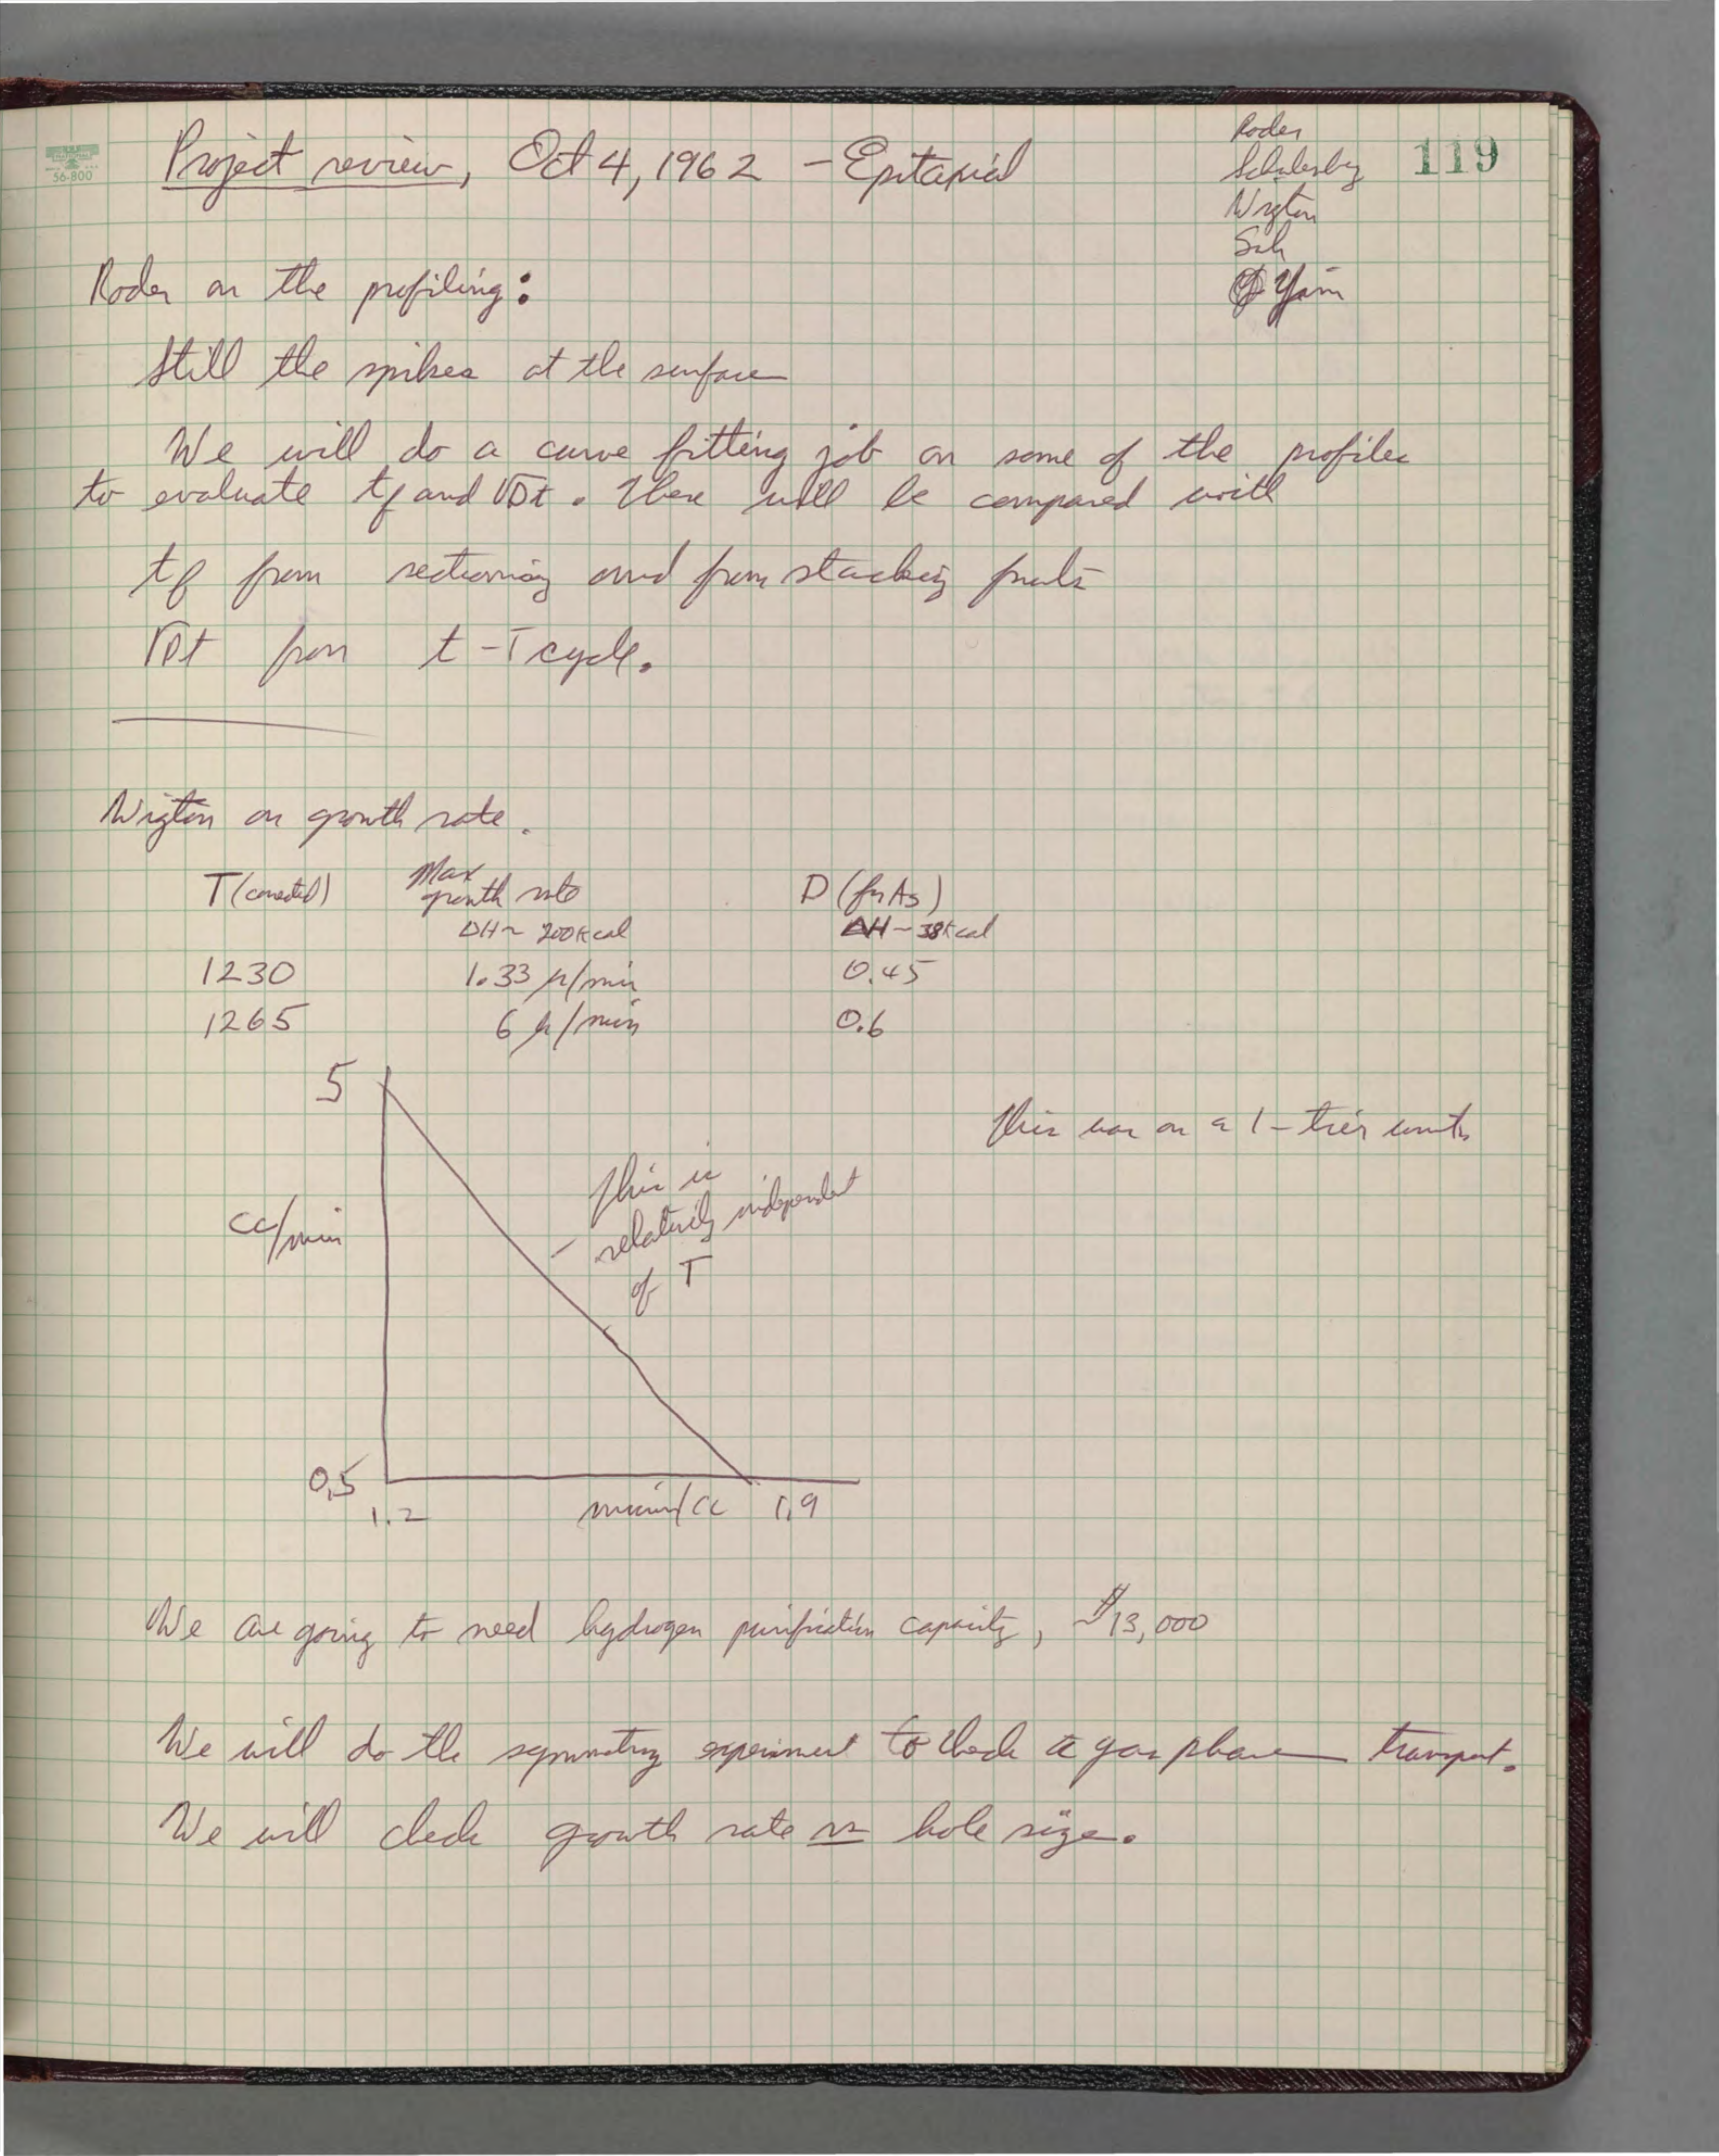 56-800
Project review, Oct 4, 1962 - Epitaxial
119
Roder
Wigton
Sah
Yim
Roder on the profiling:
Still the spikes at the surface
We will do a curve fitting job on some of the profiles
to evaluate tf and √Dt. These will be compared with
tf from sectioning and from stacking faults
√Dt from t-T cycle.
Wigton on growth rate.
T (corrected) Max growth rate D (for As)
ΔH ~ 200 kcal ΔH ~ 38 kcal
1230 1.33 μ/min 0.45
1265 6 μ/min 0.6
5
This was on a 1-tier unit.
This is
relatively independent
of T
cc/min
0.5
1.2 /cc 1.9
We are going to need hydrogen purification capacity, $13,000
We will do the symmetry experiment to check gas phase transport.
We will check growth rate vs hole size.